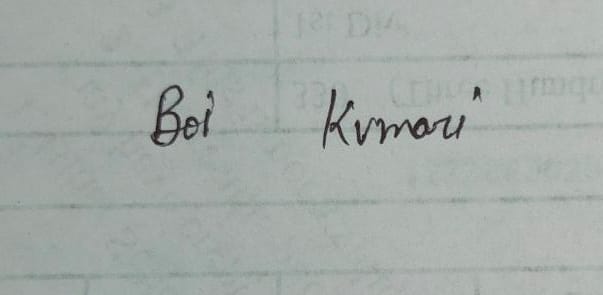 Boi Kumari